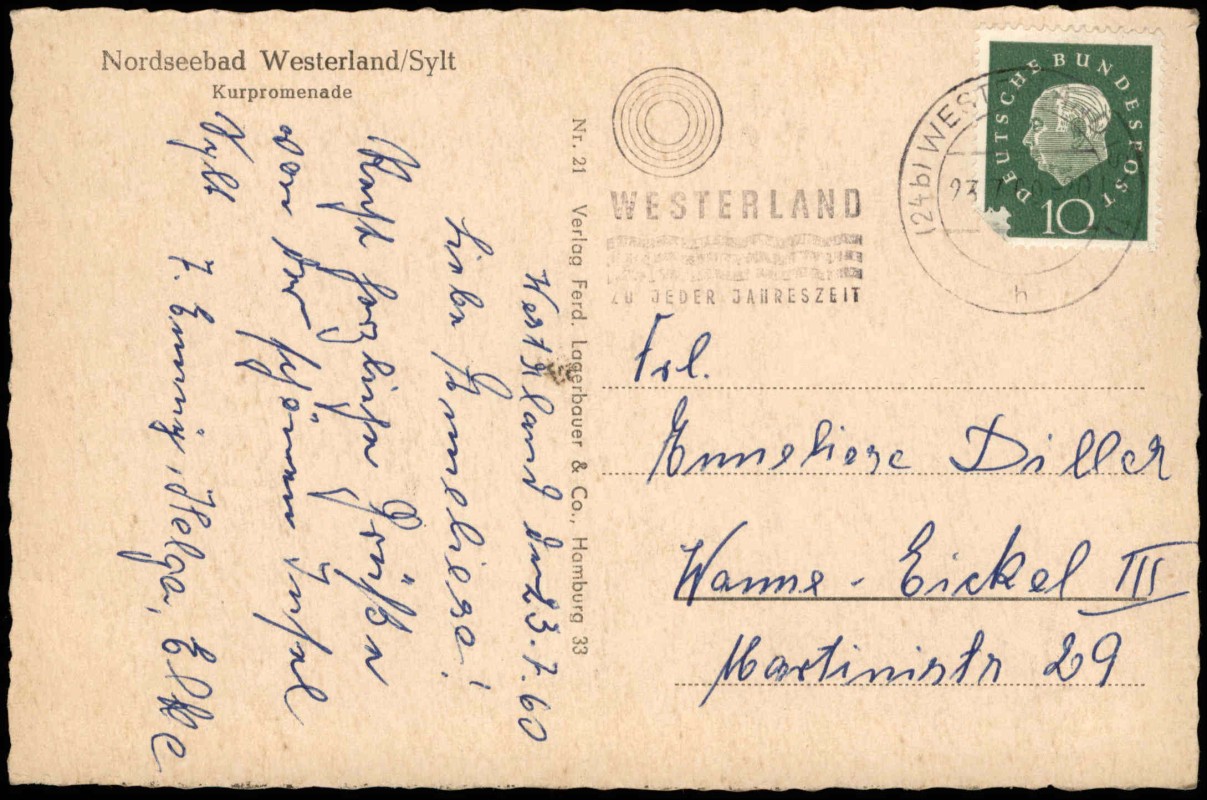 Nordseebad Westerland/Sylt
Kurpromenade
Westerland den 23.7.60
Liebe Anneliese!
Recht herzliche Grüße
von der schönen Insel
Sylt
Emmi, Helga, Elke
Nr. 21 Verlag Ferd. Lagerbauer & Co., Hamburg 33
WESTERLAND
ZU JEDER JAHRESZEIT
(24b) WEST
23.7.
h
DEUTSCHE BUNDESPOST
10
Frl.
Anneliese Diller
Wanne-Eickel III
Martinistr 29